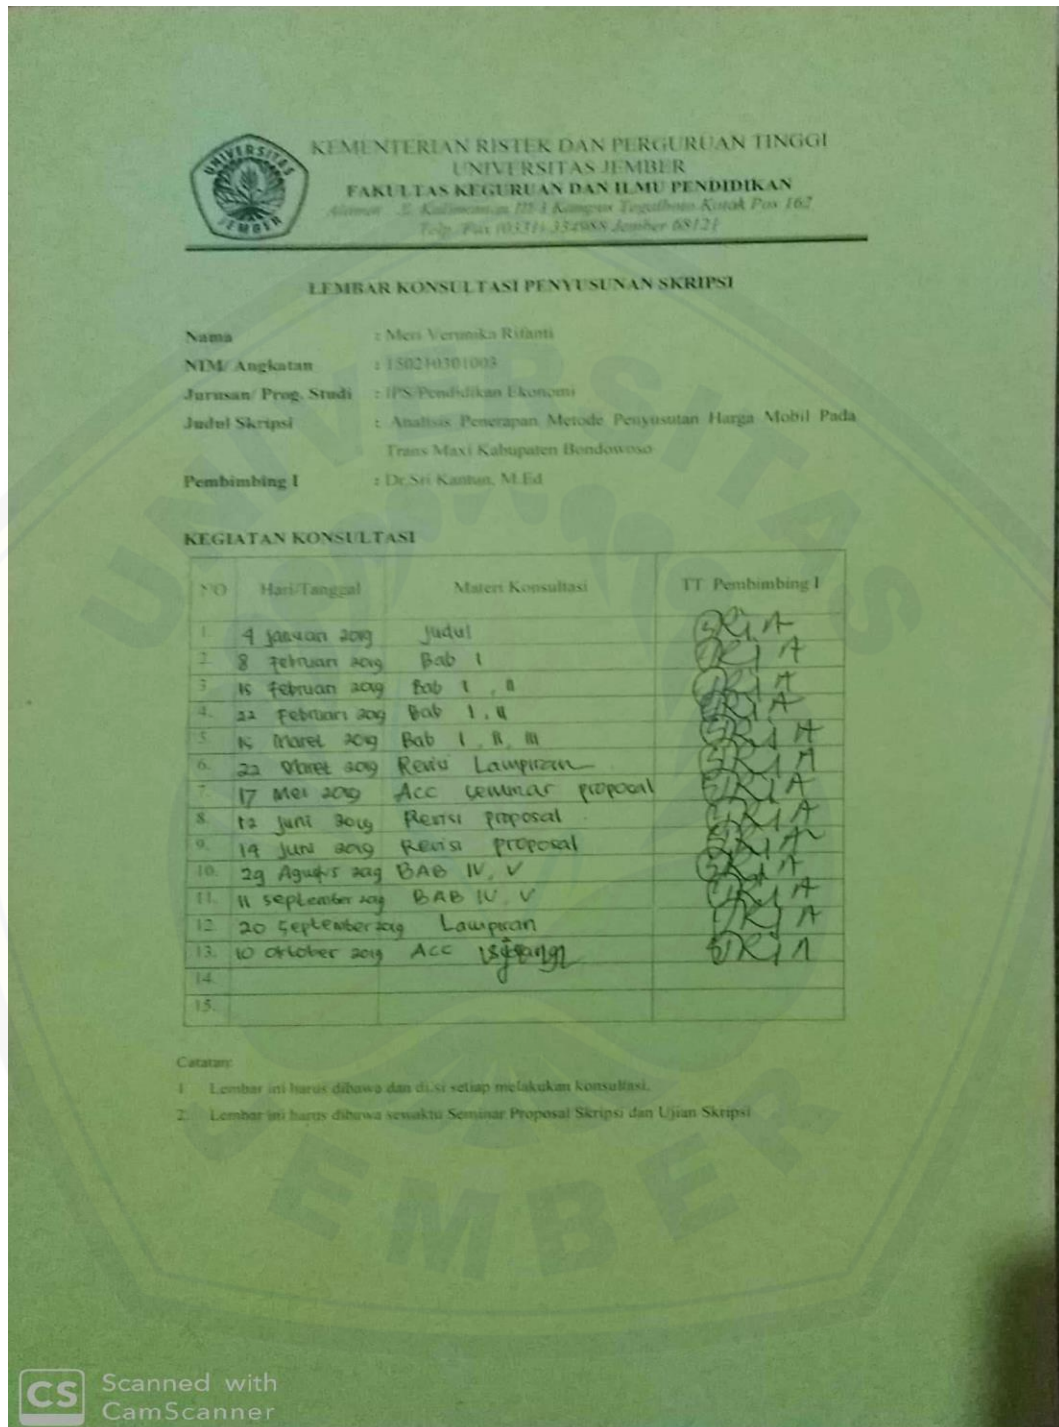 UNIVERSITAS JEMBER
KEMENTERIAN RISTEK DAN PERGURUAN TINGGI
UNIVERSITAS JEMBER
FAKULTAS KEGURUAN DAN ILMU PENDIDIKAN
Alamat : Jl. Kalimantan III/3 Kampus Tegalboto Kotak Pos 162
Telp./Fax (0331) 334988 Jember 68121
LEMBAR KONSULTASI PENYUSUNAN SKRIPSI
Nama : Meri Verunika Rifanti
NIM/ Angkatan : 150210301003
Jurusan/ Prog. Studi : IPS/Pendidikan Ekonomi
Judul Skripsi : Analisis Penerapan Metode Penyusutan Harga Mobil Pada
Trans Maxi Kabupaten Bondowoso
Pembimbing I : Dr.Sri Kantun, M.Ed
KEGIATAN KONSULTASI
NO Hari/Tanggal Materi Konsultasi TT Pembimbing I
1. 4 januari 2019 Judul
2. 8 Februari 2019 Bab I
3. 15 Februari 2019 Bab I , II
4. 22 Februari 2019 Bab I , II
5. 15 Maret 2019 Bab I , II , III
6. 22 Maret 2019 Revisi Lampiran
7. 17 Mei 2019 Acc seminar proposal
8. 12 Juni 2019 Revisi proposal
9. 19 Juni 2019 Revisi proposal
10. 29 Agustus 2019 BAB IV, V
11. 11 september 2019 BAB IV, V
12. 20 September 2019 Lampiran
13. 10 Oktober 2019 ACC
14.
15.
Catatan:
1. Lembar ini harus dibawa dan diisi setiap melakukan konsultasi.
2. Lembar ini harus dibawa sewaktu Seminar Proposal Skripsi dan Ujian Skripsi
UNIVERSITAS
JEMBER
CS Scanned with
CamScanner